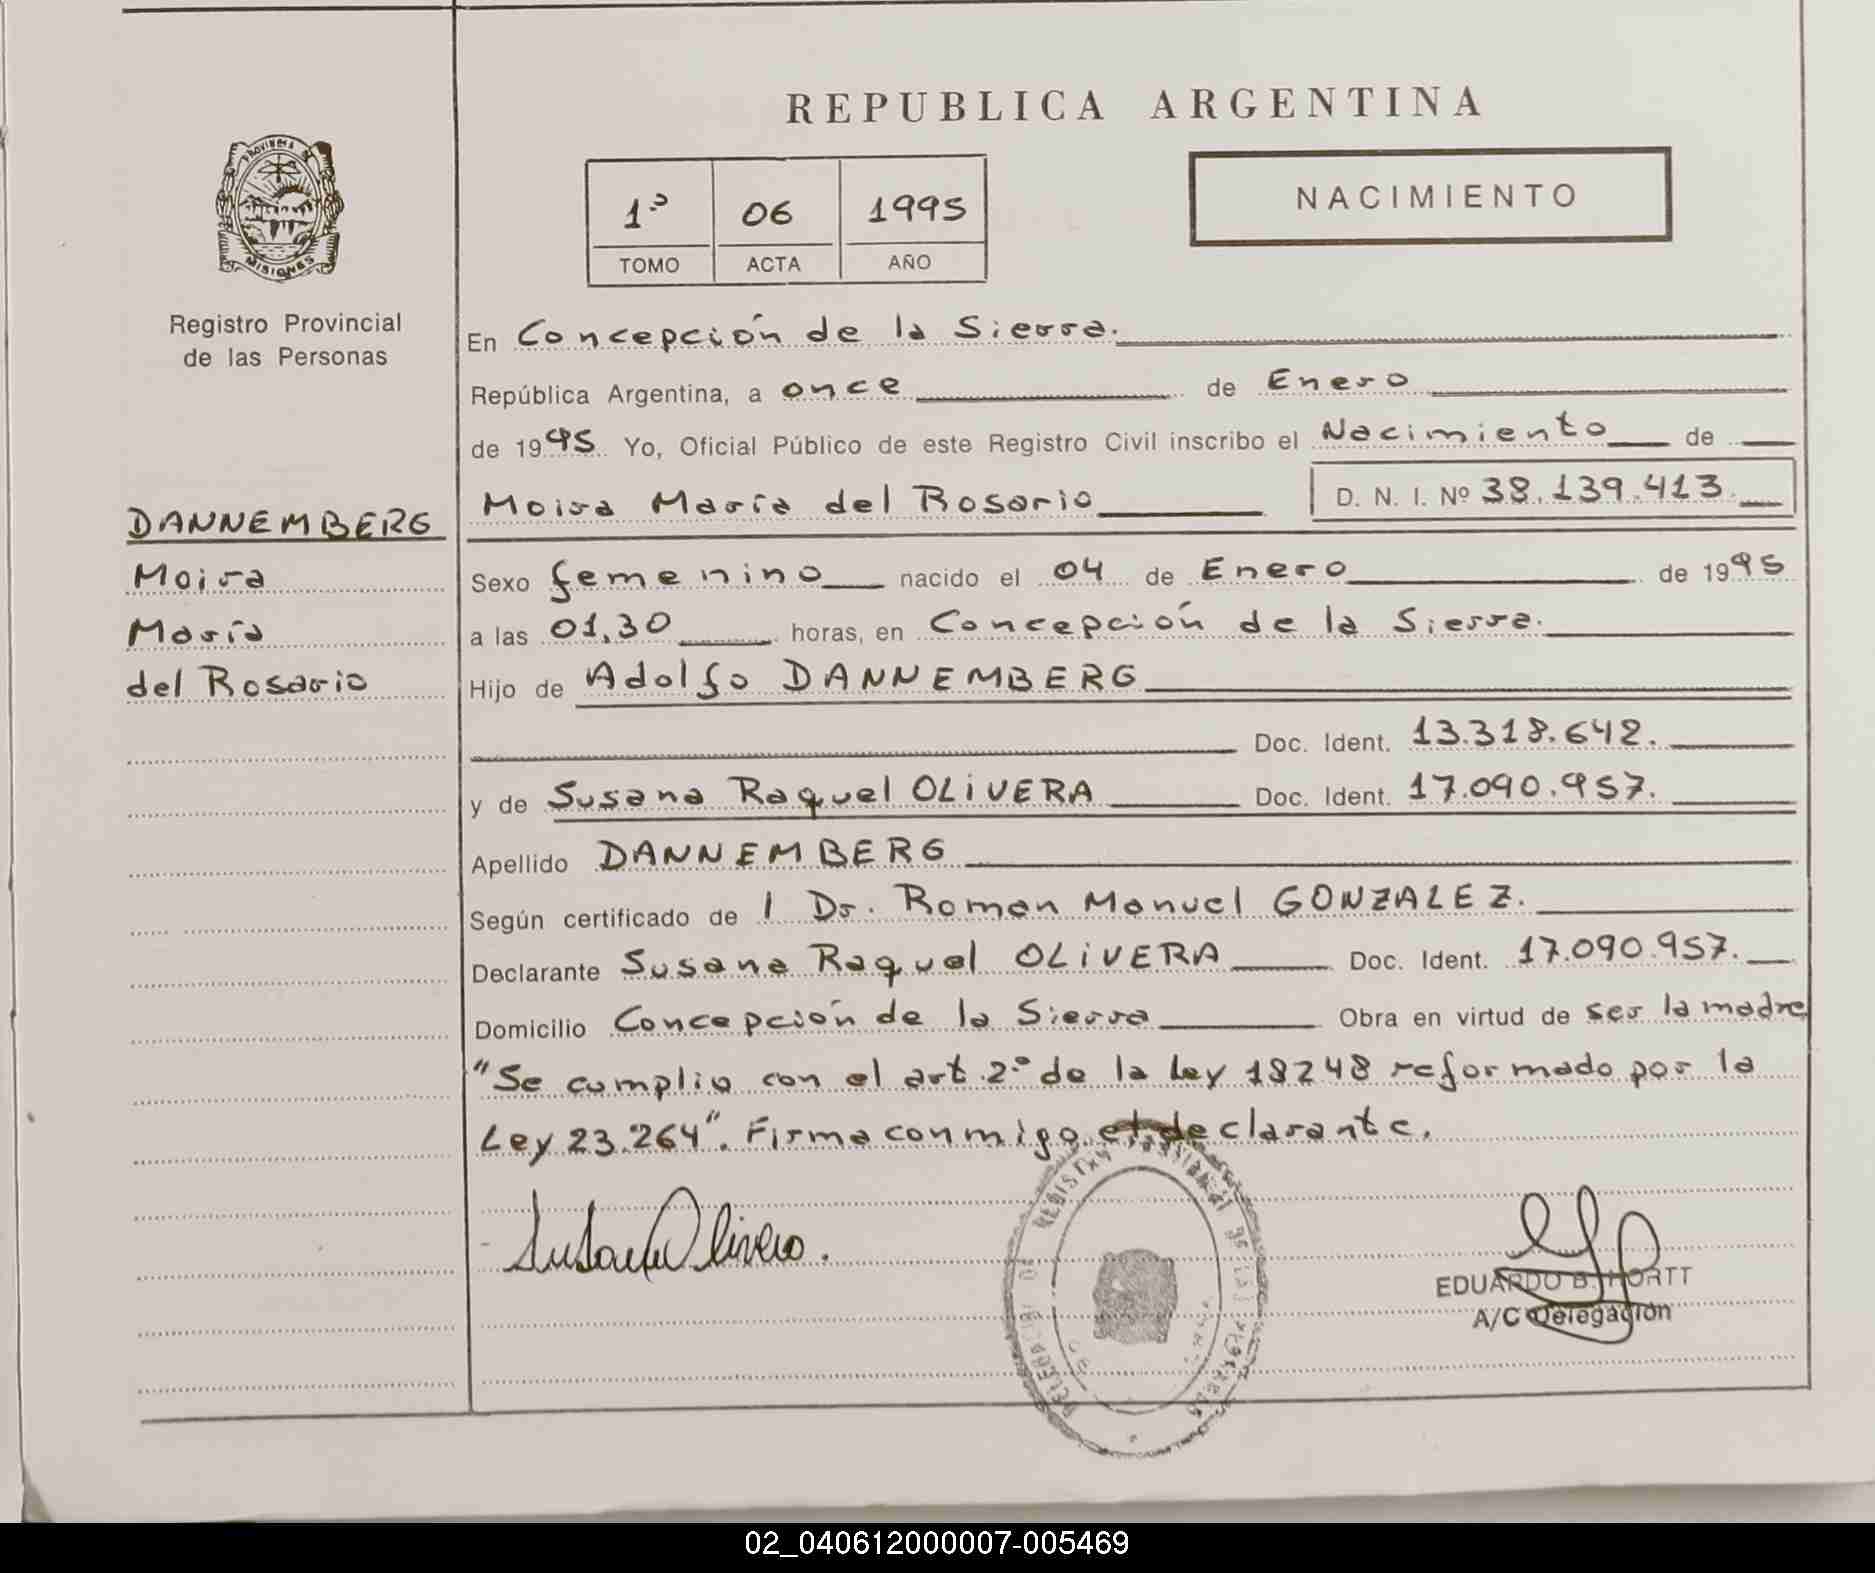 REPUBLICA ARGENTINA
PROVINCIA DE
MISIONES
Registro Provincial
de las Personas
1º 06 1995
TOMO ACTA AÑO
NACIMIENTO
En Concepción de la Sierra.
República Argentina, a once de Enero
de 1995 Yo, Oficial Público de este Registro Civil inscribo el Nacimiento de
Moira María del Rosario D. N. I. Nº 38.139.413.
DANNEMBERG
Moira
María
del Rosario
Sexo femenino nacido el 04 de Enero de 1995
a las 01,30 horas, en Concepción de la Sierra.
Hijo de Adolfo DANNEMBERG
Doc. Ident. 13.318.642.
y de Susana Raquel OLIVERA Doc. Ident. 17.090.957.
Apellido DANNEMBERG
Según certificado de l Dr. Roman Manuel GONZALEZ.
Declarante Susana Raquel OLIVERA Doc. Ident. 17.090.957.
Domicilio Concepción de la Sierra Obra en virtud de ser la madre
"Se cumplio con el art. 2º de la Ley 18248 reformado por la
Ley 23.264". Firma conmigo el declarante.
Susana Olivera.
EDUARDO B. HORTT
A/C Delegación
02_040612000007-005469